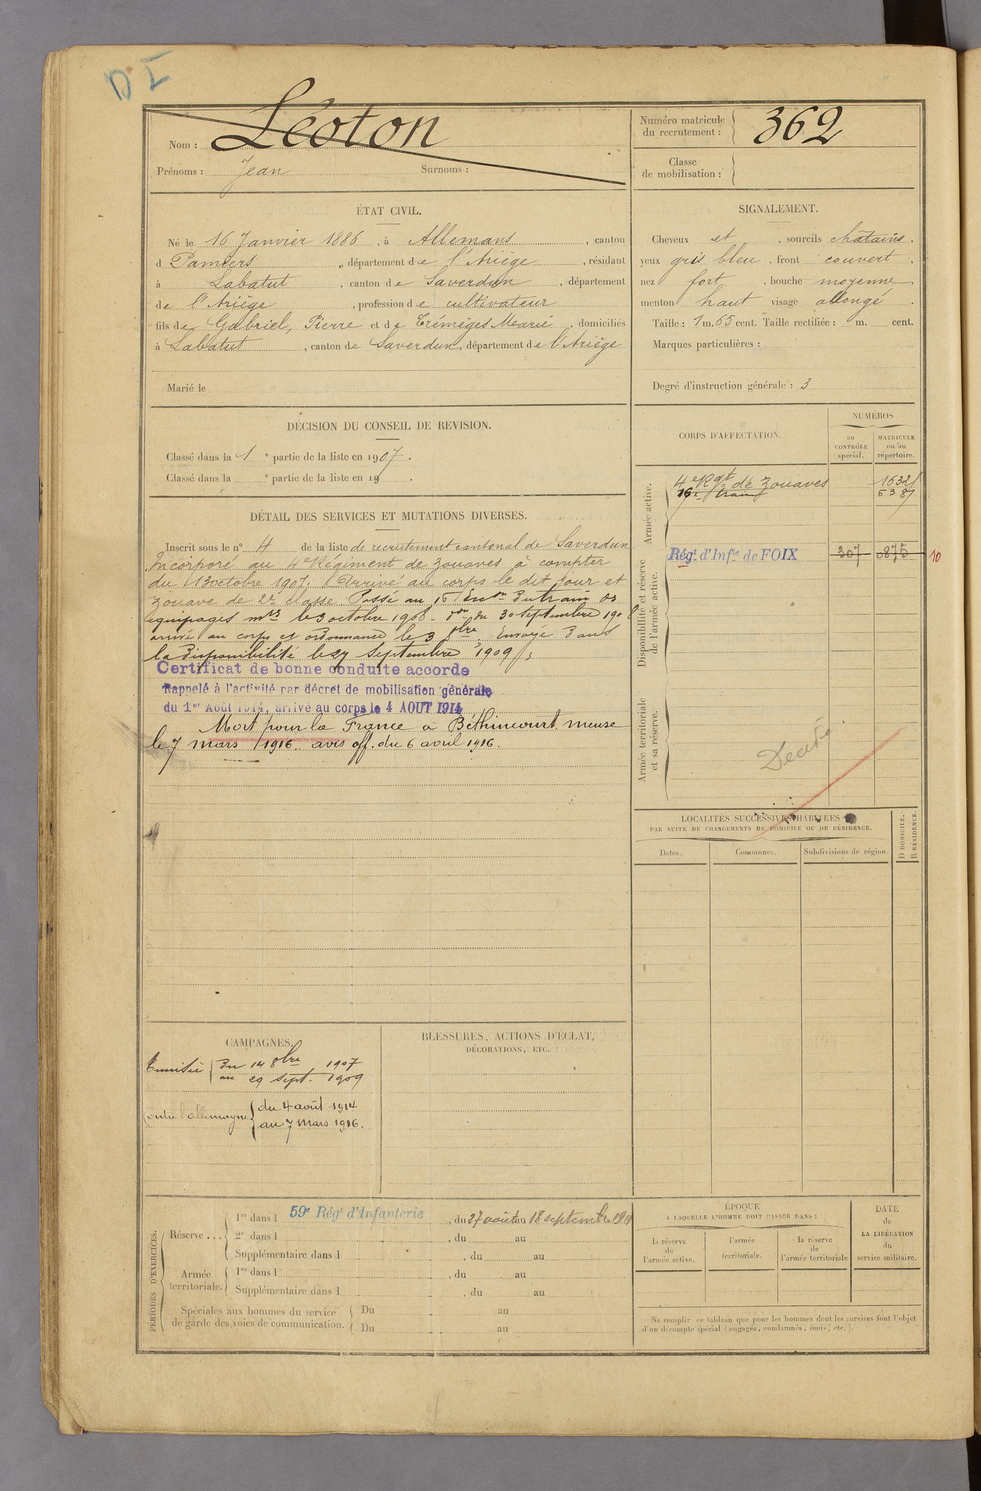 D I
Nom : Léoton
Prénoms : Jean Surnoms :
Numéro matricule du recrutement : 362
Classe de mobilisation :
ÉTAT CIVIL.
Né le 16 Janvier 1886, à Allemans, canton
d Pamiers, département de l'Ariège, résidant
à Labatut, canton de Saverdun, département
de l'Ariège, profession de cultivateur
fils de Gabriel, Pierre et de Trémèges Marie, domiciliés
à Labatut, canton de Saverdun, département de l'Ariège
Marié le
SIGNALEMENT.
Cheveux et , sourcils chatains,
yeux gris bleu, front couvert,
nez fort, bouche moyenne,
menton haut visage allongé
Taille : 1 m. 65 cent. Taille rectifiée : m. cent.
Marques particulières :
Degré d'instruction générale : 3
DÉCISION DU CONSEIL DE REVISION.
Classé dans la 1 e partie de la liste en 1907.
Classé dans la e partie de la liste en 19 .
DÉTAIL DES SERVICES ET MUTATIONS DIVERSES.
Inscrit sous le n° 4 de la liste de recrutement cantonal de Saverdun
Incorporé au 4e Régiment de zouaves à compter
du 13 octobre 1907. Arrivé au corps le dit jour et
zouave de 2e classe. Passé au 16 Eson du train des
équipages mres le 3 octobre 1908. du 30 septembre 190
arrivé au corps et ordonnance le 3 8bre. Envoyé dans
la disponibilité le 27 septembre 1909
Certificat de bonne conduite accordé
Rappelé à l'activité par décret de mobilisation générale
du 1er Août 1914, arrivé au corps le 4 AOUT 1914
Mort pour la France à Béthincourt meuse
le 7 mars 1916. avis off. du 6 avril 1916.
CORPS D'AFFECTATION.
NUMÉROS
au CONTRÔLE spécial.
MATRICULE ou au répertoire.
Armée active.
4e Rgt de zouaves
16e train
Disponibilité et réserve de l'armée active.
Régt d'Infie de FOIX 307 0875 10
Armée territoriale et sa réserve.
Décédé
LOCALITÉS SUCCESSIVES HABITÉES
PAR SUITE DE CHANGEMENTS DE DOMICILE OU DE RÉSIDENCE.
Dates. Communes. Subdivisions de région. D DOMICILE. R RÉSIDENCE.
CAMPAGNES.
Tunisie du 14 8bre 1907
au 29 sept. 1909
contre l'allemagne du 4 août 1914
au 7 mars 1916.
BLESSURES, ACTIONS D'ÉCLAT,
DÉCORATIONS, ETC.
PÉRIODES D'EXERCICES.
Réserve...
1re dans l 59e Régt d'Infanterie, du 27 août au 18 septembre
2e dans l , du au
Supplémentaire dans l , du au
Armée territoriale.
1re dans l , du au
Supplémentaire dans l , du au
Spéciales aux hommes du service de garde des voies de communication.
Du au
Du au
ÉPOQUE
A LAQUELLE L'HOMME DOIT PASSER DANS :
la réserve de l'armée active.
l'armée territoriale.
la réserve de l'armée territoriale
DATE DE LA LIBÉRATION du service militaire.
Ne remplir ce tableau que pour les hommes dont les services font l'objet
d'un décompte spécial (engagés, condamnés, omis, etc.).